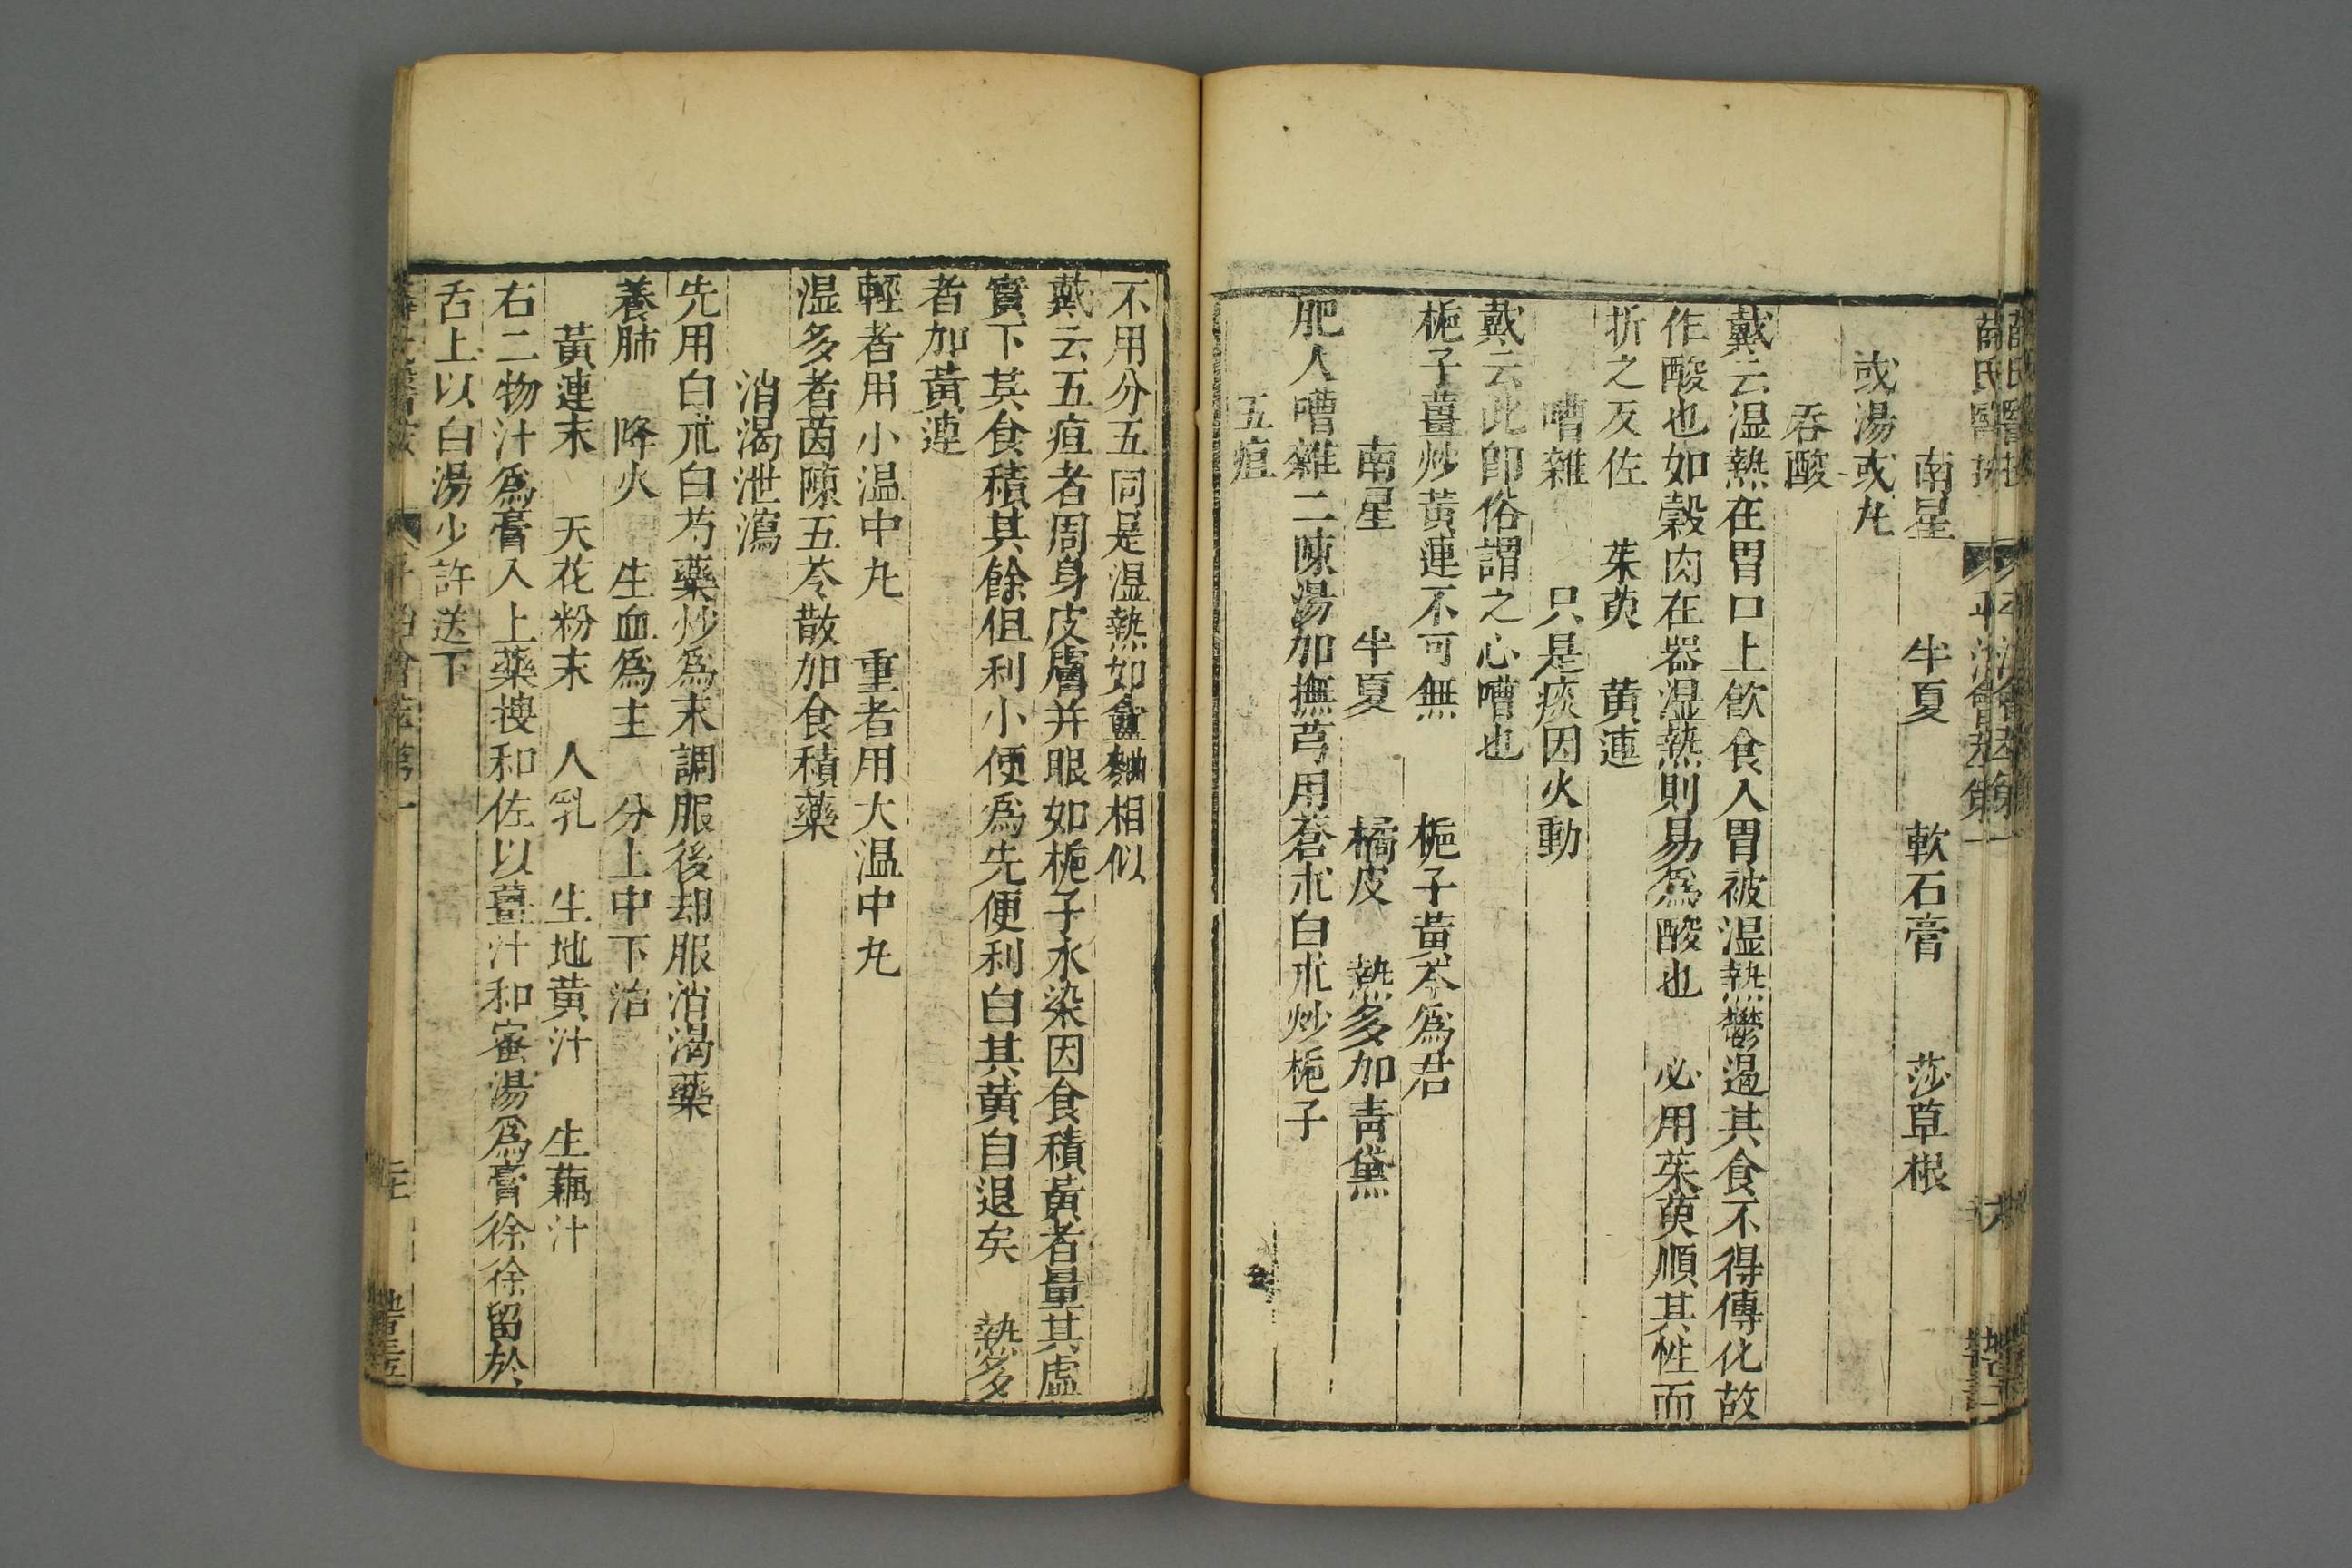 南星　半夏　軟石膏　莎草根
或湯或丸
吞酸
戴云湿熱在胃口上飲食入胃被湿熱鬱遏其食不得傳化故
作酸也如穀肉在器湿熱則易為酸也　必用茱萸順其性而
折之反佐　茱萸　黃連
嘈雜　只是痰因火動
戴云此即俗謂之心嘈也
梔子薑炒黃連不可無　梔子黃芩為君
南星　半夏　橘皮　熱多加青黛
肥人嘈雜二陳湯加撫芎用蒼朮白朮炒梔子
五疸
不用分五同是湿熱如盦麯相似
戴云五疸者周身皮膚并眼如梔子水染因食積黃者量其虛
實下其食積其餘但利小便為先便利白其黃自退矣　熱多
者加黃連
輕者用小温中丸　重者用大温中丸
湿多者茵陳五苓散加食積藥
消渴泄瀉
先用白朮白芍藥炒為末調服後却服消渴藥
養肺　降火　生血為主　分上中下治
黃連末　天花粉末　人乳　生地黃汁　生藕汁
右二物汁為膏入上藥搜和佐以薑汁和蜜湯為膏徐徐留於
舌上以白湯少許送下